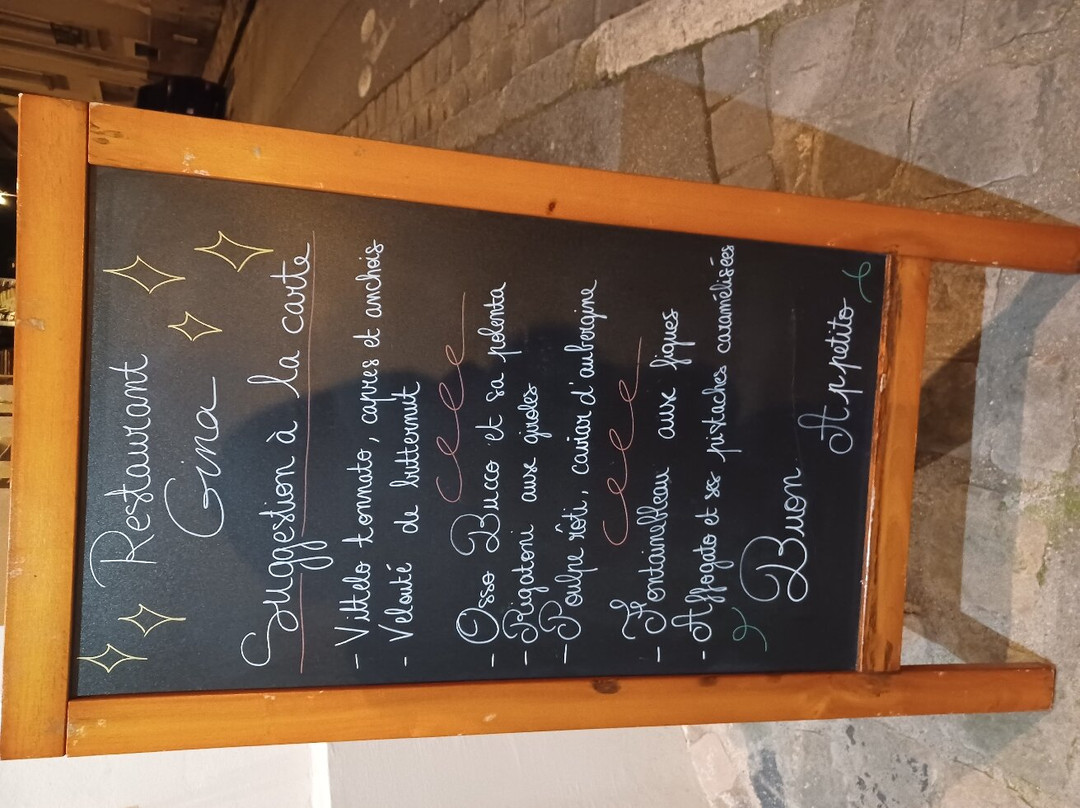 Restaurant
Gina
Suggestion à la carte
- Vittelo tonnato, capres et anchois
- Velouté de butternut
- Osso Bucco et sa polenta
- Rigatoni aux giroles
- Poulpe rôti, caviar d'aubergine
- Fontainebleau aux figues
- Affogato et ses pistaches caramélisées
Buon
Appetito